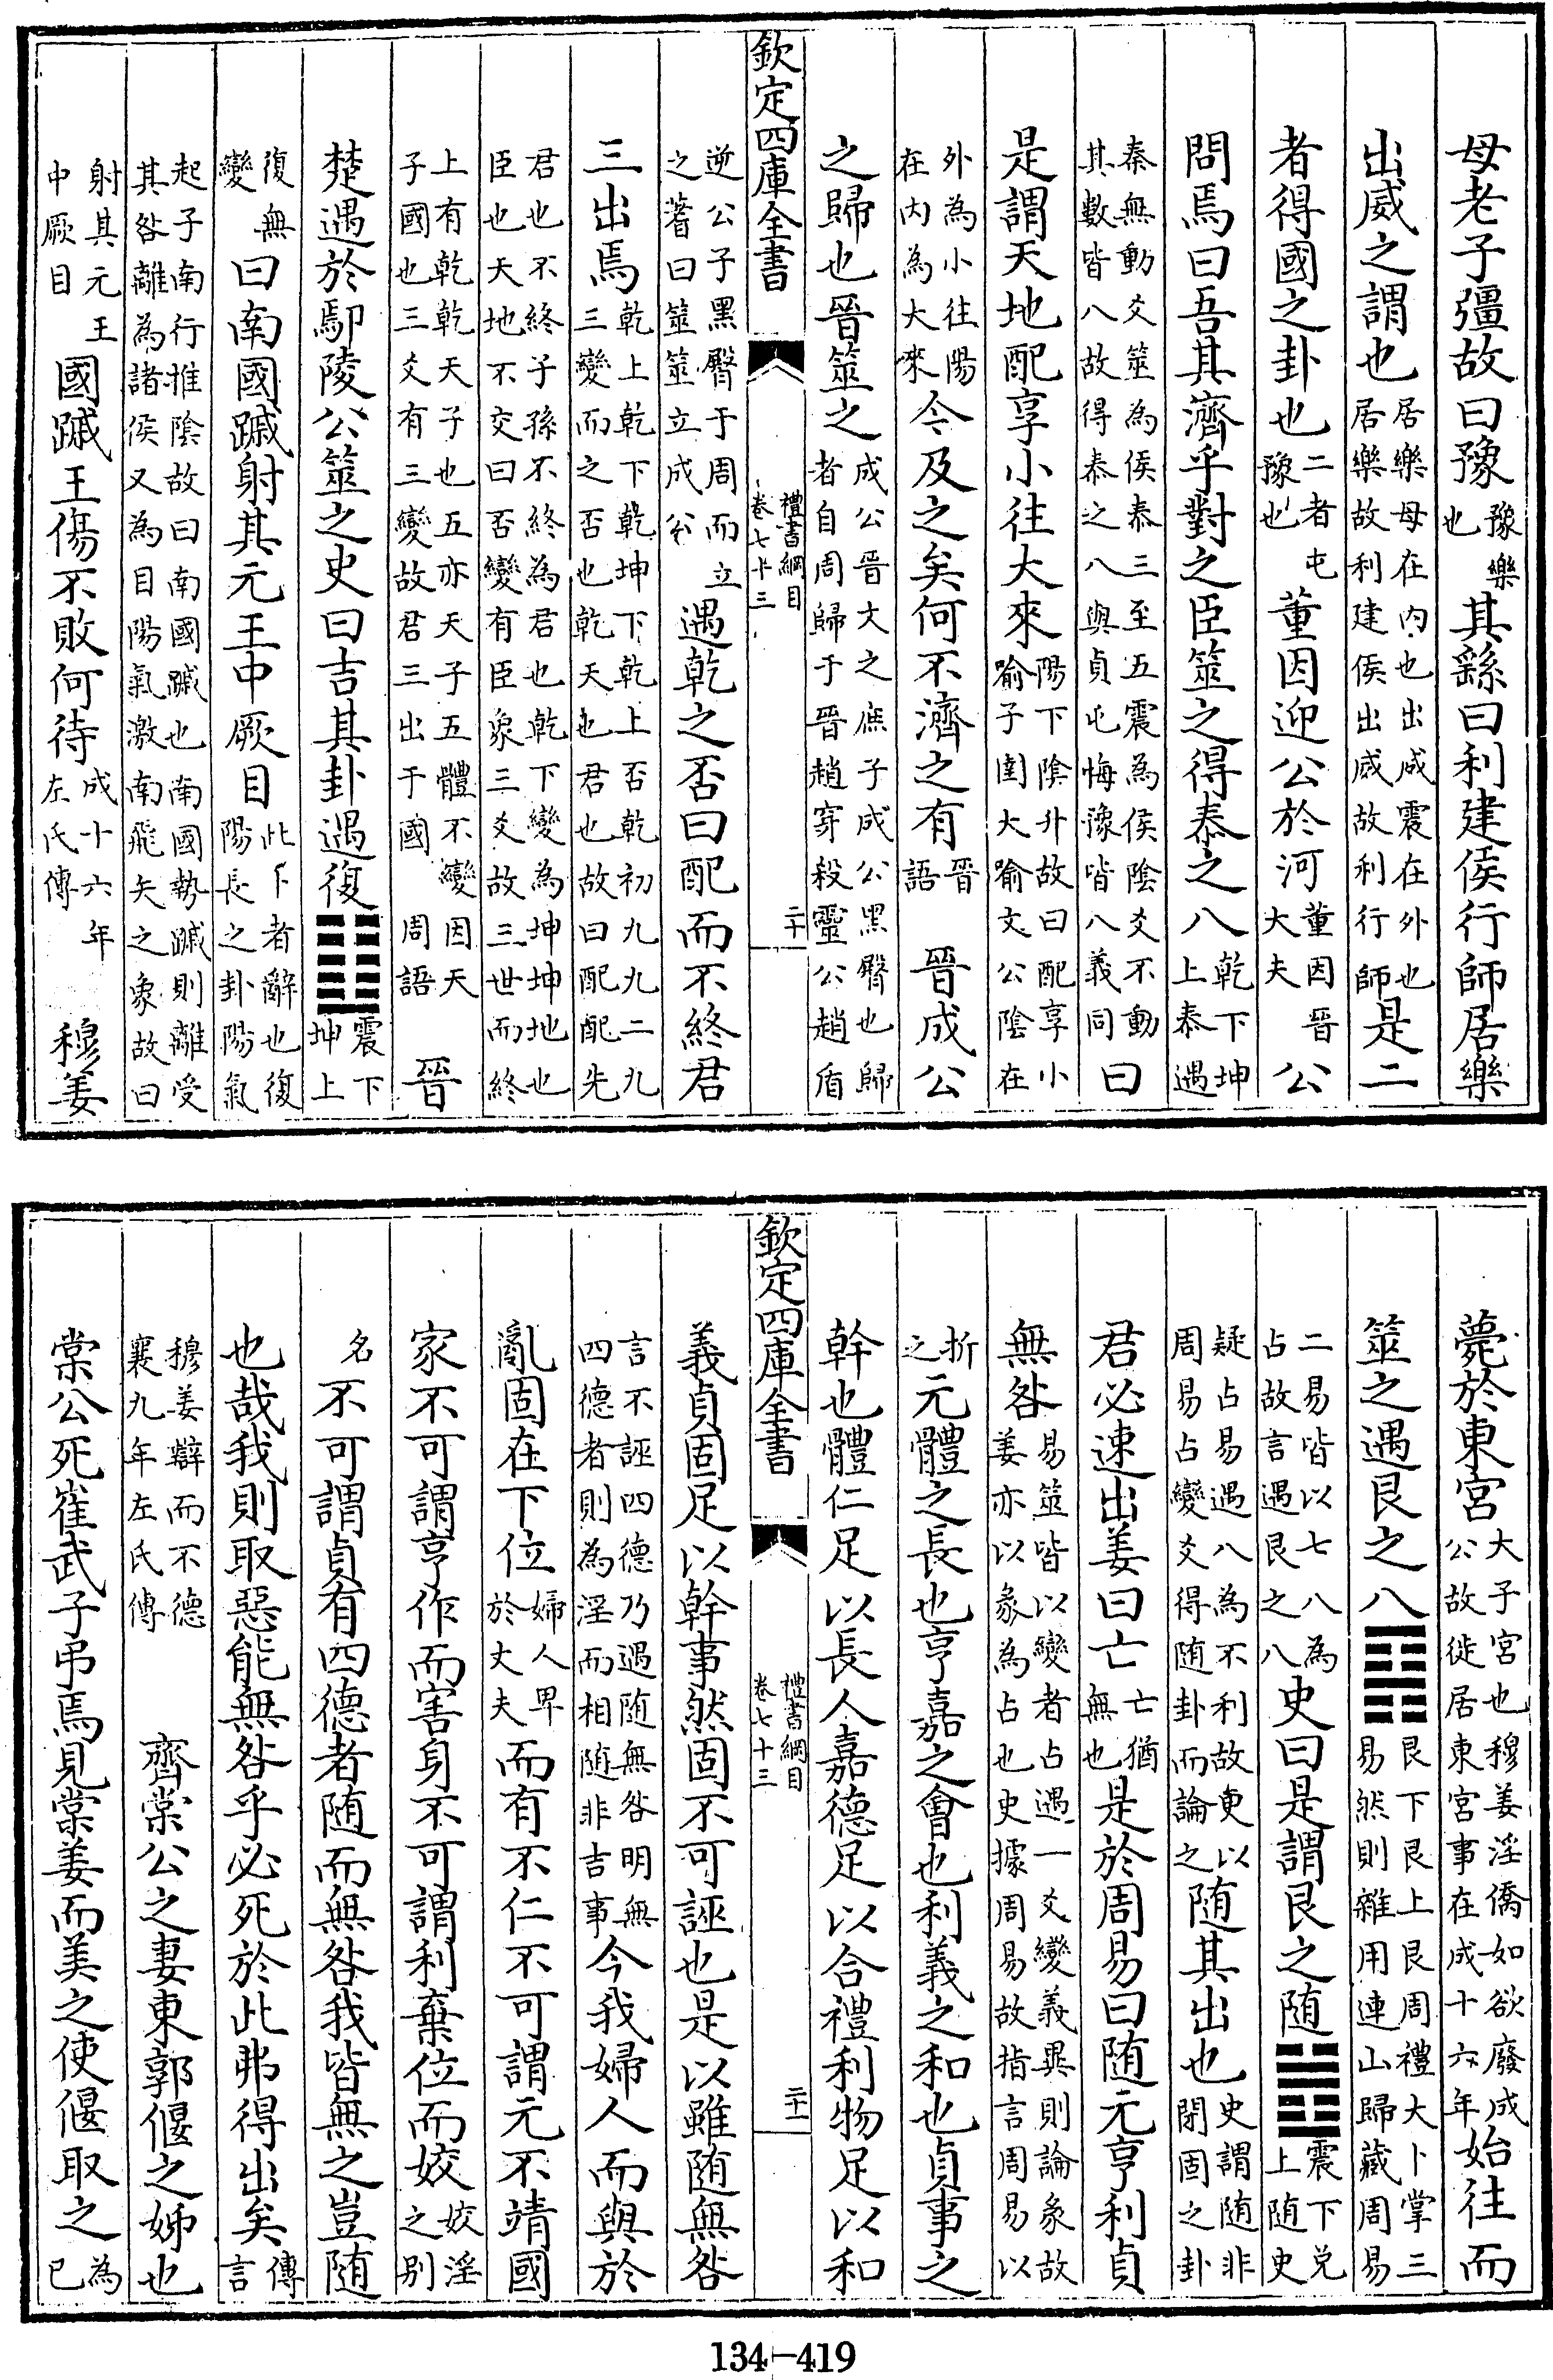 母老子彊故曰豫豫樂也其繇曰利建侯行師居樂
出威之謂也居樂母在內也出威震在外也居樂故利建侯出威故利行師是二
者得國之卦也二者屯豫也董因迎公於河董因晉大夫公
問焉曰吾其濟乎對之臣筮之得泰之八乾下坤上泰遇
泰無動爻筮為侯泰三至五震為侯陰爻不動其數皆八故得泰之八與貞屯悔豫皆八義同曰
是謂天地配享小往大來陽下陰升故曰配享小喻子圉大喻文公陰在
外為小往陽在內為大來今及之矣何不濟之有晉語晉成公
之歸也晉筮之成公晉大之庶子成公黑臀也歸者自周歸于晉趙穿殺靈公趙盾
欽定四庫全書 禮書綱目卷七十三 二十
逆公子黑臀于周而立之蓍曰筮筮立成公遇乾之否曰配而不終君
三出焉乾上乾下乾坤下乾上否乾初九九二九三變而之否也乾天也君也故曰配配先
君也不終子孫不終為君也乾下變為坤坤地也臣也天地不交曰否變有臣象三爻故三世而終
上有乾乾天子也五亦天子五體不變因天子國也三爻有三變故君三出于國周語晉
楚遇於鄢陵公筮之史曰吉其卦遇復䷗震下坤上
復無變曰南國蹙射其元王中厥目此下者辭也復陽長之卦陽氣
起子南行推陰故曰南國蹙也南國勢蹙則離受其咎離為諸侯又為目陽氣激南飛矢之象故曰
射其元王中厥目國蹙王傷不敗何待成十六年左氏傳穆姜
薨於東宮大子宮也穆姜淫僑如欲廢成公故徙居東宮事在成十六年始往而
筮之遇艮之八䷳艮下艮上艮周禮大卜掌三易然則雜用連山歸藏周易
二易皆以七八為占故言遇艮之八史曰是謂艮之随䷐震下兌上随史
疑占易遇八為不利故更以周易占變爻得随卦而論之随其出也史謂随非閉固之卦
君必速出姜曰亡亡猶無也是於周易曰随元亨利貞
無咎易筮皆以變者占遇一爻變義異則論彖故姜亦以彖為占也史據周易故指言周易以
折之元體之長也亨嘉之會也利義之和也貞事之
幹也體仁足以長人嘉德足以合禮利物足以和
欽定四庫全書 禮書綱目卷七十三 二十一
義貞固足以幹事然固不可誣也是以雖随無咎
言不誣四德乃遇随無咎明無四德者則為淫而相随非吉事今我婦人而與於
亂固在下位婦人卑於丈夫而有不仁不可謂元不靖國
家不可謂亨作而害身不可謂利棄位而姣姣淫之别
名不可謂貞有四德者随而無咎我皆無之豈随
也哉我則取惡能無咎乎必死於此弗得出矣傳言
穆姜辯而不德襄九年左氏傳齊棠公之妻東郭偃之姊也
棠公死崔武子弔焉見棠姜而美之使偃取之為已
134-419